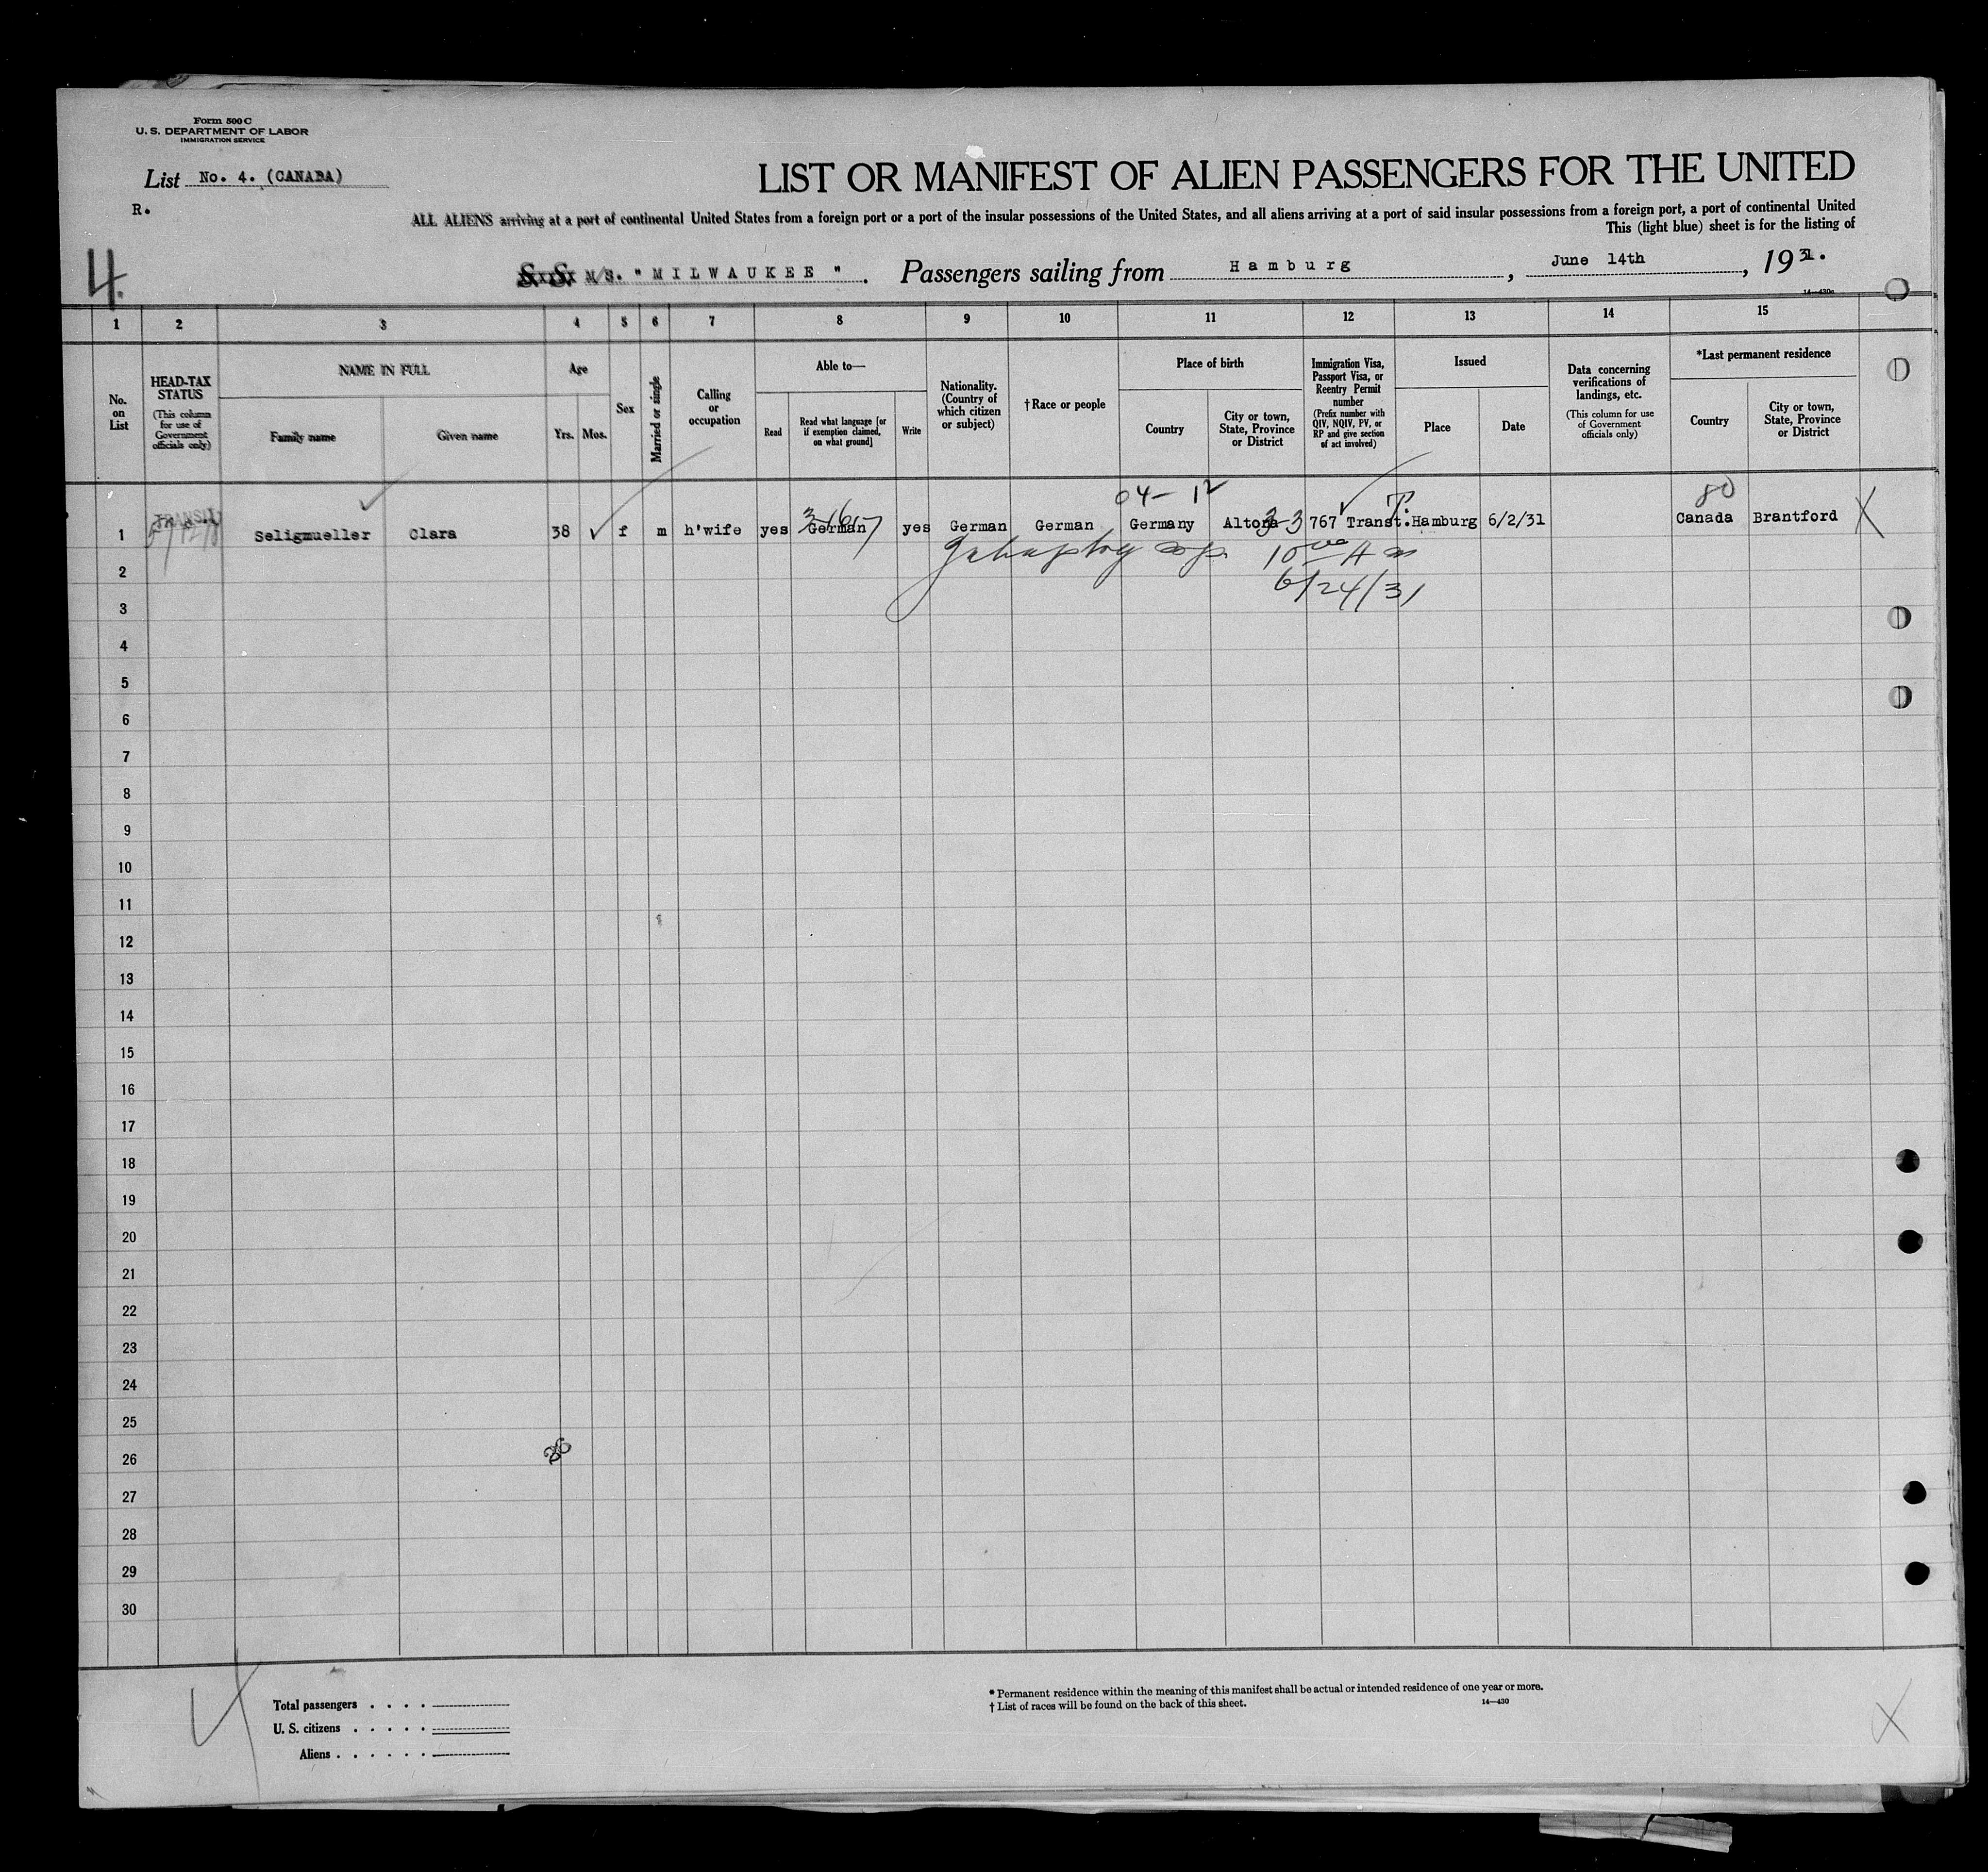 Form 500 C
U. S. DEPARTMENT OF LABOR
IMMIGRATION SERVICE
List No. 4. (CANADA)
R.
LIST OR MANIFEST OF ALIEN PASSENGERS FOR THE UNITED
ALL ALIENS arriving at a port of continental United States from a foreign port or a port of the insular possessions of the United States, and all aliens arriving at a port of said insular possessions from a foreign port, a port of continental United
This (light blue) sheet is for the listing of
4.
S. S. M/S. "MILWAUKEE". Passengers sailing from Hamburg, June 14th, 1931.
14—430c
1 2 3 4 5 6 7 8 9 10 11 12 13 14 15
No. on List
HEAD-TAX STATUS
(This column for use of Government officials only)
NAME IN FULL
Family name
Given name
Age
Yrs. Mos.
Sex
Married or single
Calling or occupation
Able to—
Read
Read what language [or if exemption claimed, on what ground]
Write
Nationality. (Country of which citizen or subject)
†Race or people
Place of birth
Country
City or town, State, Province or District
Immigration Visa, Passport Visa, or Reentry Permit number
(Prefix number with QIV, NQIV, PV, or RP and give section of act involved)
Issued
Place
Date
Data concerning verifications of landings, etc.
(This column for use of Government officials only)
*Last permanent residence
Country
City or town, State, Province or District
04- 12 80
TRANSIT
1 Seligmueller Clara 38 f m h'wife yes German yes German German Germany Altona 767 Transt. Hamburg 6/2/31 Canada Brantford X
2
6/24/31
3
4
5
6
7
8
9
10
11
12
13
14
15
16
17
18
19
20
21
22
23
24
25
26
27
28
29
30
Total passengers . . . .
U. S. citizens . . . . .
Aliens . . . . . .
* Permanent residence within the meaning of this manifest shall be actual or intended residence of one year or more.
† List of races will be found on the back of this sheet.
14—430
X